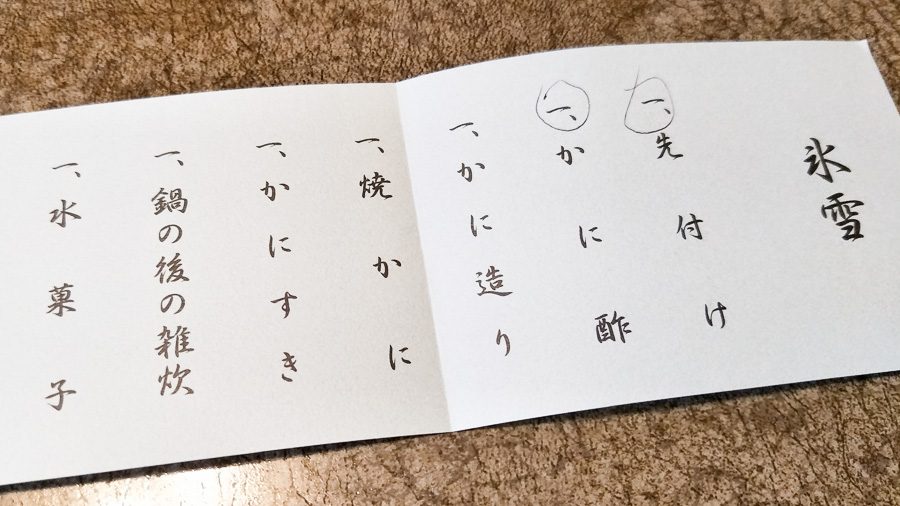 氷雪
一、先付け
一、かに酢
一、かに造り
一、焼かに
一、かにすき
一、鍋の後の雑炊
一、水菓子